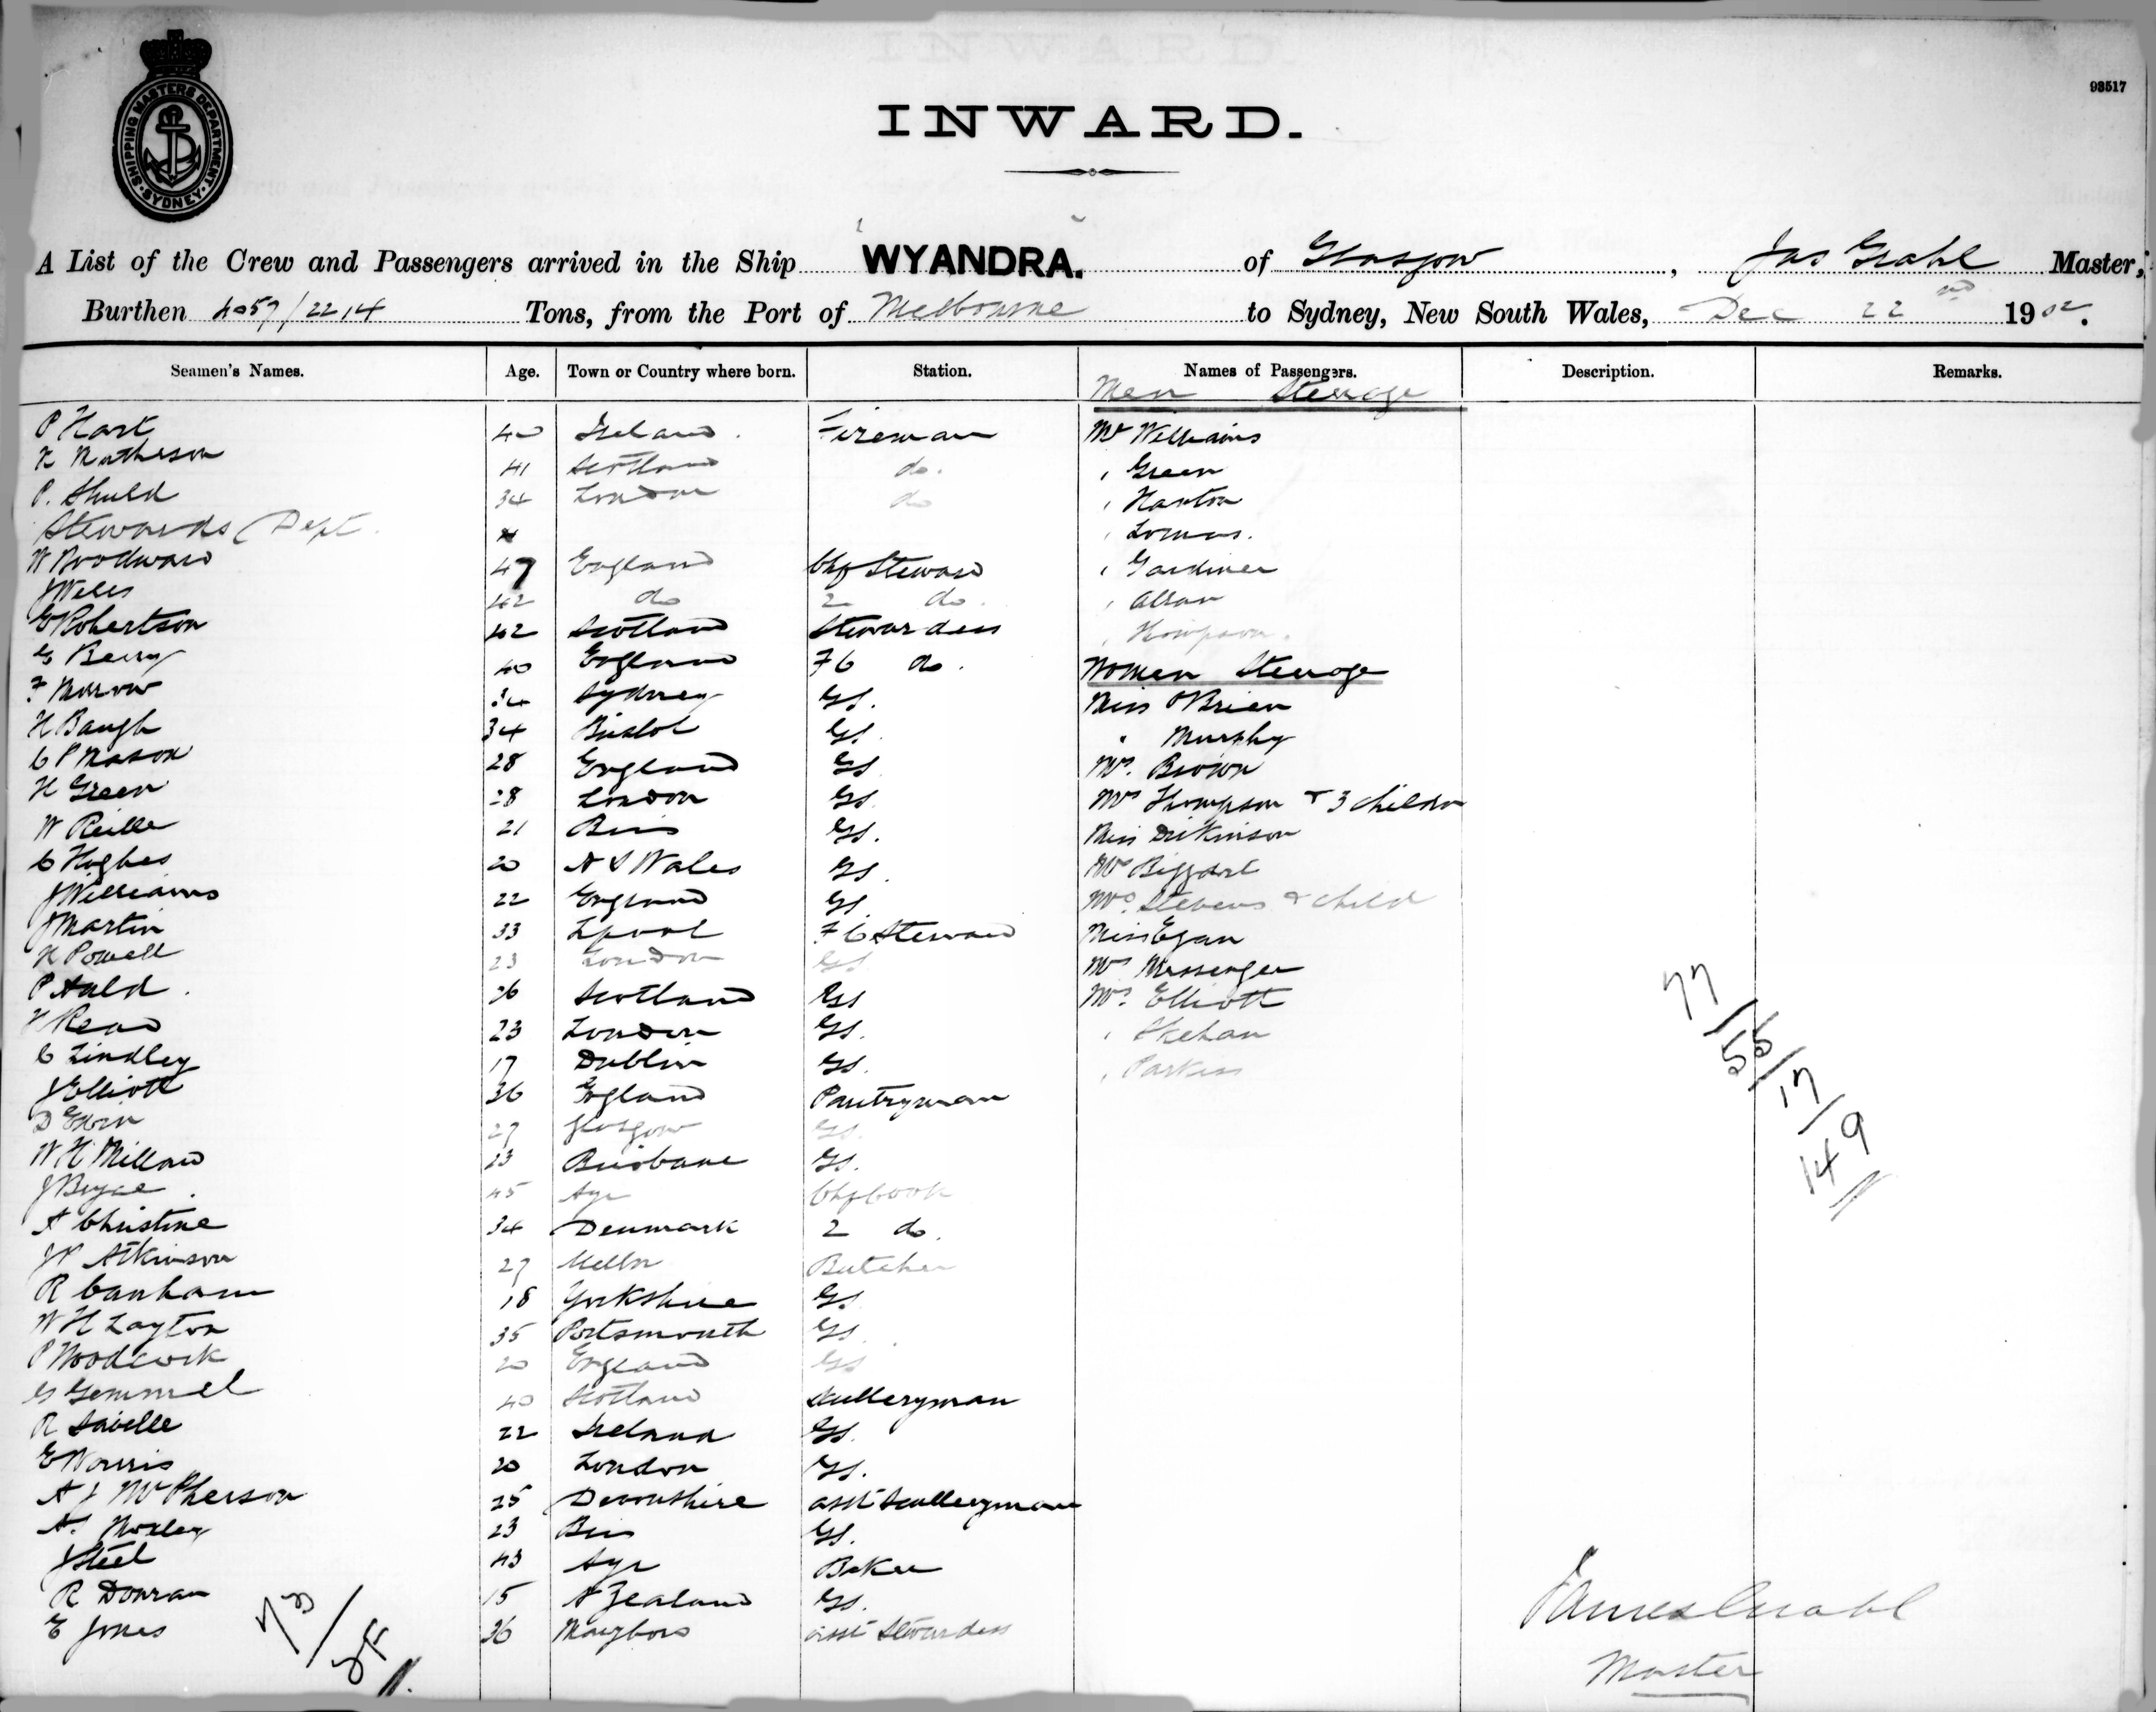 93517
SHIPPING MASTERS DEPARTMENT · SYDNEY ·
INWARD.
A List of the Crew and Passengers arrived in the Ship WYANDRA. of Glasgow, Jas Grahl Master,
Burthen 4057/2214 Tons, from the Port of Melbourne to Sydney, New South Wales, Dec 22nd 1902.
Seamen's Names. Age. Town or Country where born. Station. Names of Passengers. Description. Remarks.
Men Steerage
P Hart 40 Ireland Fireman Mr Williams
K Matheson 41 Scotland do. " Green
P. Shuld 34 London do "
Stewards Dept. " Lomas.
W Woodward 47 England Chf Steward " Gardiner
J Wells 42 do 2 do. " Allan
E Robertson 42 Scotland Stewardess " Thompson.
G Berry 40 England FC do. Women Steerage
F Morrow 34 Sydney GS. Miss O'Brien
H Baugh 34 Bristol GS. " Murphy
C P Mason 28 England GS Mrs. Brown
H Green 28 London GS. Mrs Thompson + 3 childn
W 21 Bris GS. Miss Dickinson
C Hughes 20 N S Wales GS. Mrs
J Williams 22 England GS. Mrs. Stevens + child
J Martin 33 Lpool FC Steward Miss Egan
H Powell 23 London GS Mrs Messenger
P Auld. 26 Scotland GS Mrs. Elliott
H Read 23 London GS. " Skehan
C Lindley 17 Dublin GS. "
J Elliott 36 England Pantryman
D 27 Glasgow GS.
W H Millard 23 Brisbane GS.
J Boyce 45 Ayr Chf Cook
A Christine 34 Denmark 2 do.
J W Atkinson 27 Melbn Butcher
R Canham 18 Yorkshire GS
W H Layton 35 Portsmouth GS.
P Woodcock 20 England GS
G Gemmel 40 Scotland Sculleryman
R Saville 22 Ireland GS.
E Norris 20 London GS.
A J McPherson 25 Devonshire asst Sculleryman
A. Moxley 23 Bris GS.
J Steel 43 Ayr Baker
R Donran 15 N Zealand GS.
E Jones 36 Maryboro asst Stewardess
77/55/17/149
James Grahl
Master